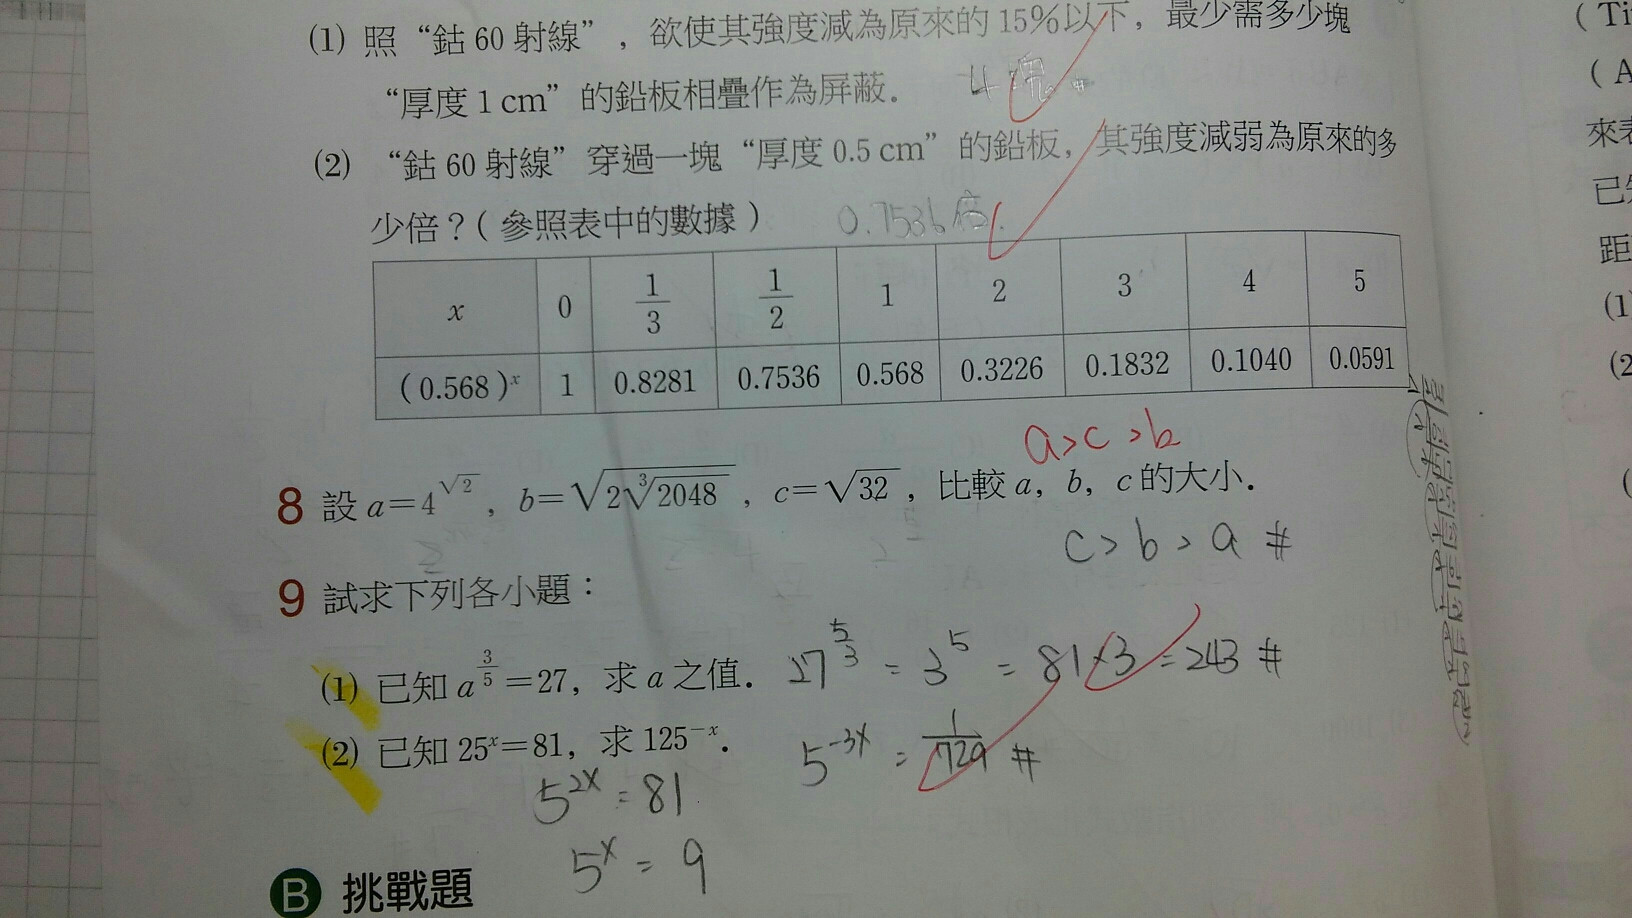 (1) 照“鈷 60 射線”，欲使其強度減為原來的 15% 以下，最少需多少塊
“厚度 1 cm”的鉛板相疊作為屏蔽． 4塊。#
(2) “鈷 60 射線”穿過一塊“厚度 0.5 cm”的鉛板，其強度減弱為原來的多
少倍？（參照表中的數據） 0.7536倍.
x 0 1/3 1/2 1 2 3 4 5
(0.568)^x 1 0.8281 0.7536 0.568 0.3226 0.1832 0.1040 0.0591
a>c>b
8 設 a=4^√2，b=√(2∛2048)，c=√32，比較 a，b，c 的大小．
c>b>a #
9 試求下列各小題：
(1) 已知 a^(3/5)=27，求 a 之值． 27^(5/3) = 3^5 = 81×3 = 243 #
(2) 已知 25^x=81，求 125^-x． 5^-3x = 1/729 #
5^2x = 81
5^x = 9
B 挑戰題
( Ti
( A
來
已
距
(1)
(2
(